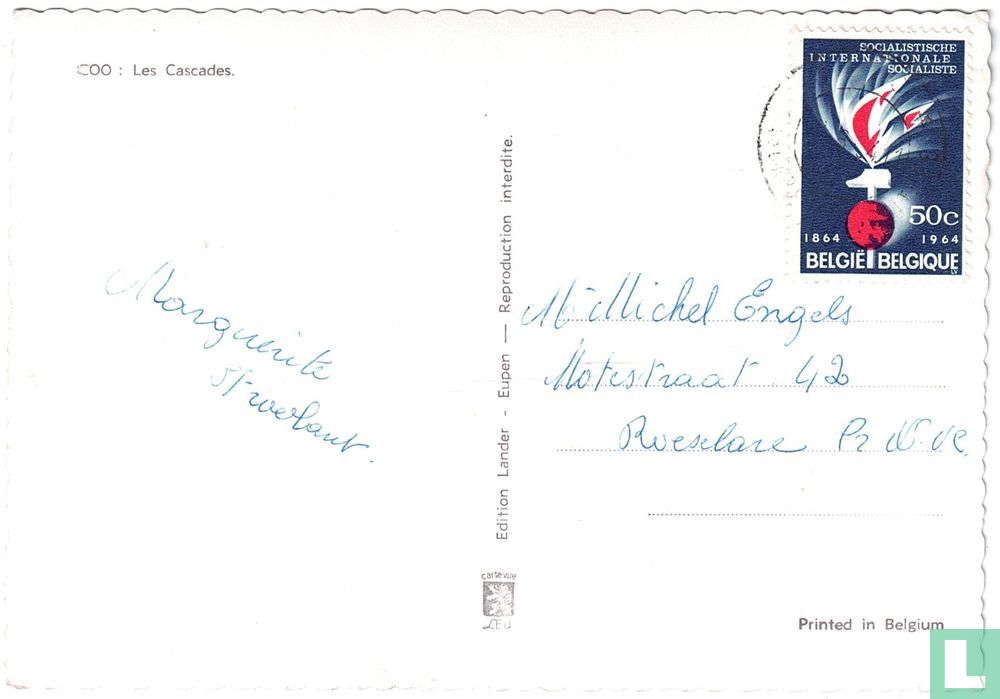 COO : Les Cascades.
SOCIALISTISCHE
INTERNATIONALE
SOCIALISTE
50c
1864 1964
BELGIË BELGIQUE
Marguerite
Mr Michel Engels
straat 42
Roeselare Pr W. Vl.
Edition Lander - Eupen — Reproduction interdite.
carte vue
LEU
Printed in Belgium
L